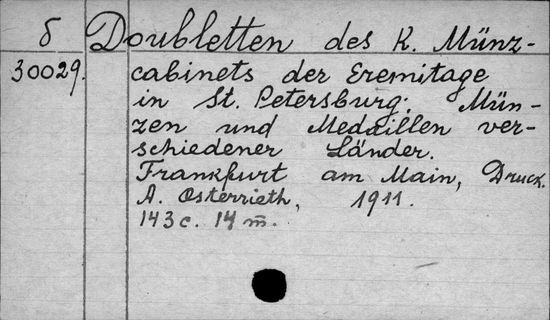 δ Doubletten des K. Münz-
30029. cabinets der Eremitage
in St. Petersburg: Mün-
zen und Medaillen ver-
schiedener Länder.
Frankfurt am Main, Druck.
A. Osterrieth, 1911.
143 c. 14 m̅.